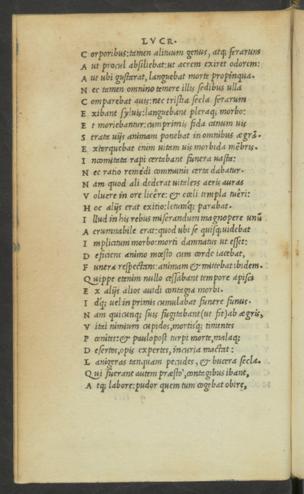 LVCR.
C orporibus: tamen alituum genus, atq; ferarum
A ut procul absiliebat: ut acrem exiret odorem:
A ut ubi gustarat, languebat morte propinqua.
N ec tamen omnino temere illis sedibus ulla
C omparebat auis: nec tristia secla ferarum
E xibant syluis: languebant pleraq; morbo:
E t moriebantur: cum primis fida canum uis
S trata uijs animam ponebat in omnibus ægrã.
E xtorquebat enim uitam uis morbida mẽbris.
I ncomitata rapi certabant funera uasta:
N ec ratio remedi communis certa dabatur.
N am quod ali dederat uitaleis aeris auras
V oluere in ore licere: & cæli templa tueri:
H oc alijs erat exitio: letumq; parabat.
I llud in his rebus miserandum magnopere unũ
A erumnabile erat: quod ubi se quisq; uidebat
I mplicitum morbo: morti damnatus ut esset:
D eficiens animo mœsto cum corde iacebat,
F unera respectans: animam & mittebat ibidem.
Q uippe etenim nullo cessabant tempore apisci
E x alijs alios auidi contagia morbi.
I dq; uel in primis cumulabat funere funus.
N am quicunq; suis fugitabant (ut fit) ab ægris,
V itæi nimium cupidos, mortisq; timentes
P œnites: & paulopost turpi morte, malaq;
D esertos, opis expertes, incuria mactat:
L anigeras tanquam pecudes, & bucera secla.
Q ui fuerant autem præsto, contagibus ibant,
A tq; labore: pudor quem tum cogebat obire,